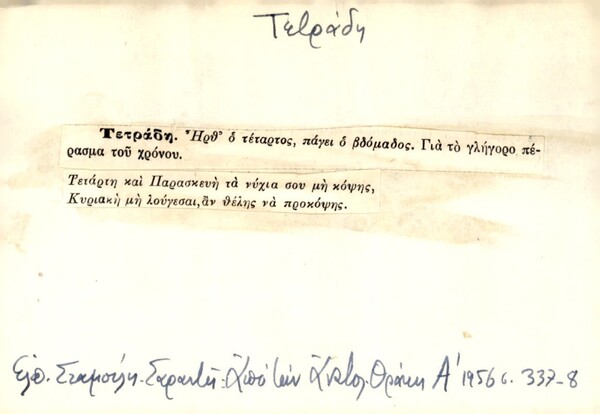 Τετράδη
Τετράδη. Ἦρθ' ὁ τέταρτος, πάγει ὁ βδόμαδος. Γιὰ τὸ γλήγορο πέ-
ρασμα τοῦ χρόνου.
Τετάρτη καὶ Παρασκευὴ τὰ νύχια σου μὴ κόψης,
Κυριακὴ μὴ λούγεσαι, ἂν θέλης νὰ προκόψης.
Ἐλπ. Σταμούλη-Σαραντῆ: Ἀπὸ τὴν Ἀνατολ. Θράκη Α' 1956 σ. 337-8